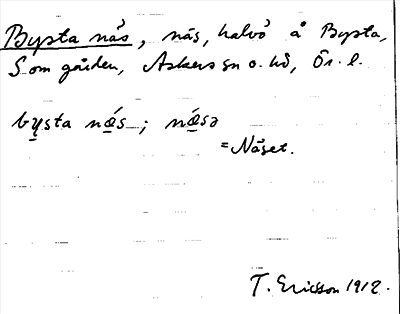 Bysta näs, näs, halvö å Bysta,
S om gården, Askers sn o. hd, Ör. l.
bysta nǽs ; nǽsə
= Näset.
T. Ericsson 1912.